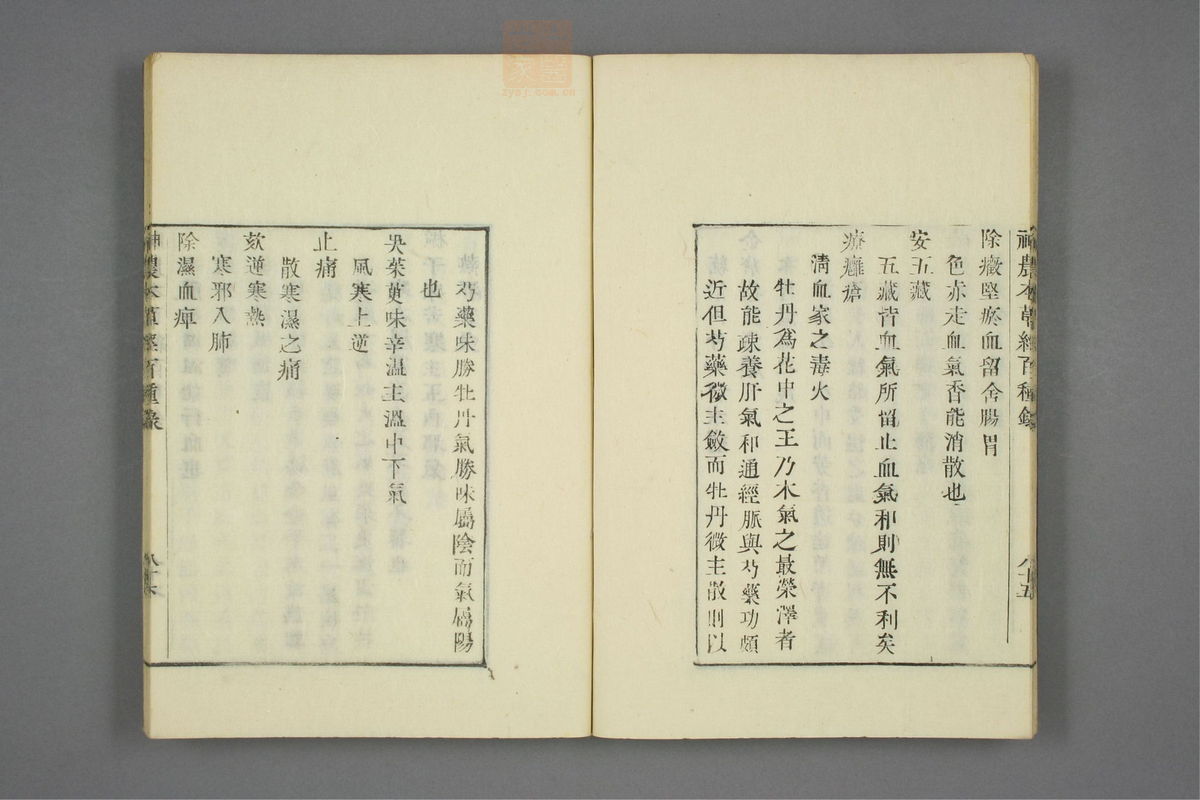 神農本草經百種錄 八十五
除癥堅瘀血留舍腸胃
色赤走血氣香能消散也
安五藏
五藏皆血氣所留止血氣和則無不利矣
療癰瘡
淸血家之毒火
牡丹爲花中之王乃木氣之最榮澤者
故能疎養肝氣和通經脈與芍藥功頗
近但芍藥微主斂而牡丹微主散則以
芍藥味勝牡丹氣勝味屬陰而氣屬陽
也
吳茱萸味辛溫主溫中下氣
風寒上逆
止痛
散寒濕之痛
欬逆寒熱
寒邪入肺
除濕血痺
神農本草經百種錄 八十六
zysj.com.cn